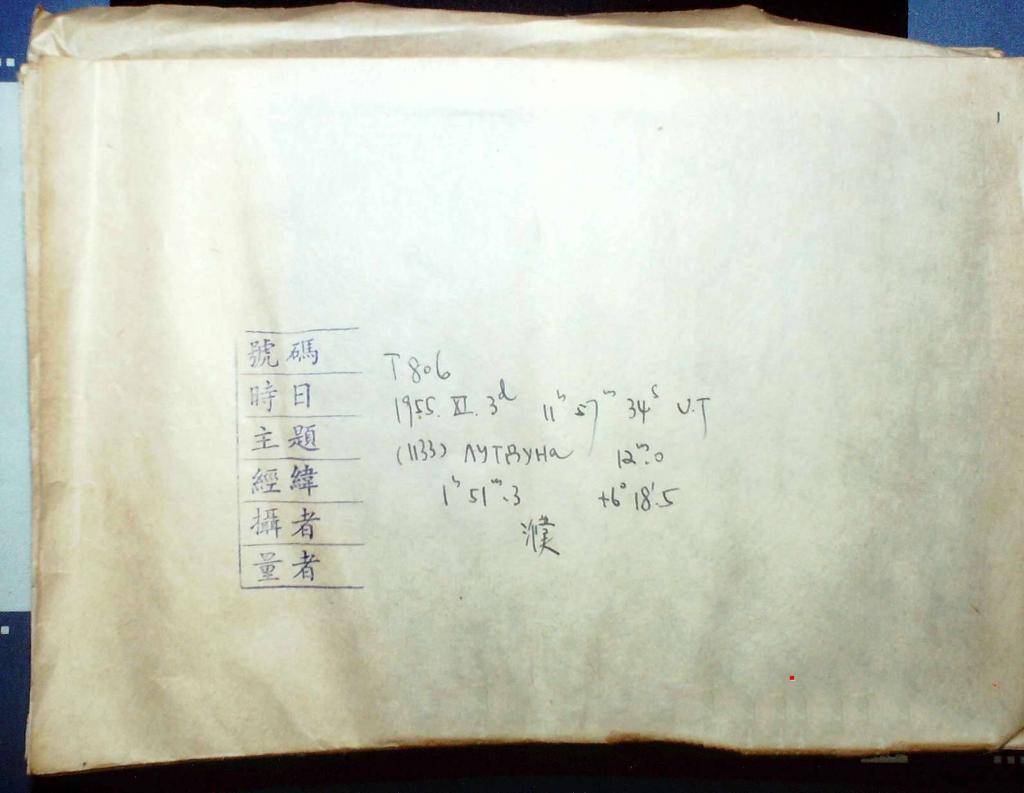 號碼 T 806
時日 1955. XI. 3ᵈ 11ʰ 57ᵐ 34ˢ U.T
主題 (1133) ЛУТДУНа 12ᵐ.0
經緯 1ʰ 51ᵐ.3 +6° 18'.5
攝者 濮
量者